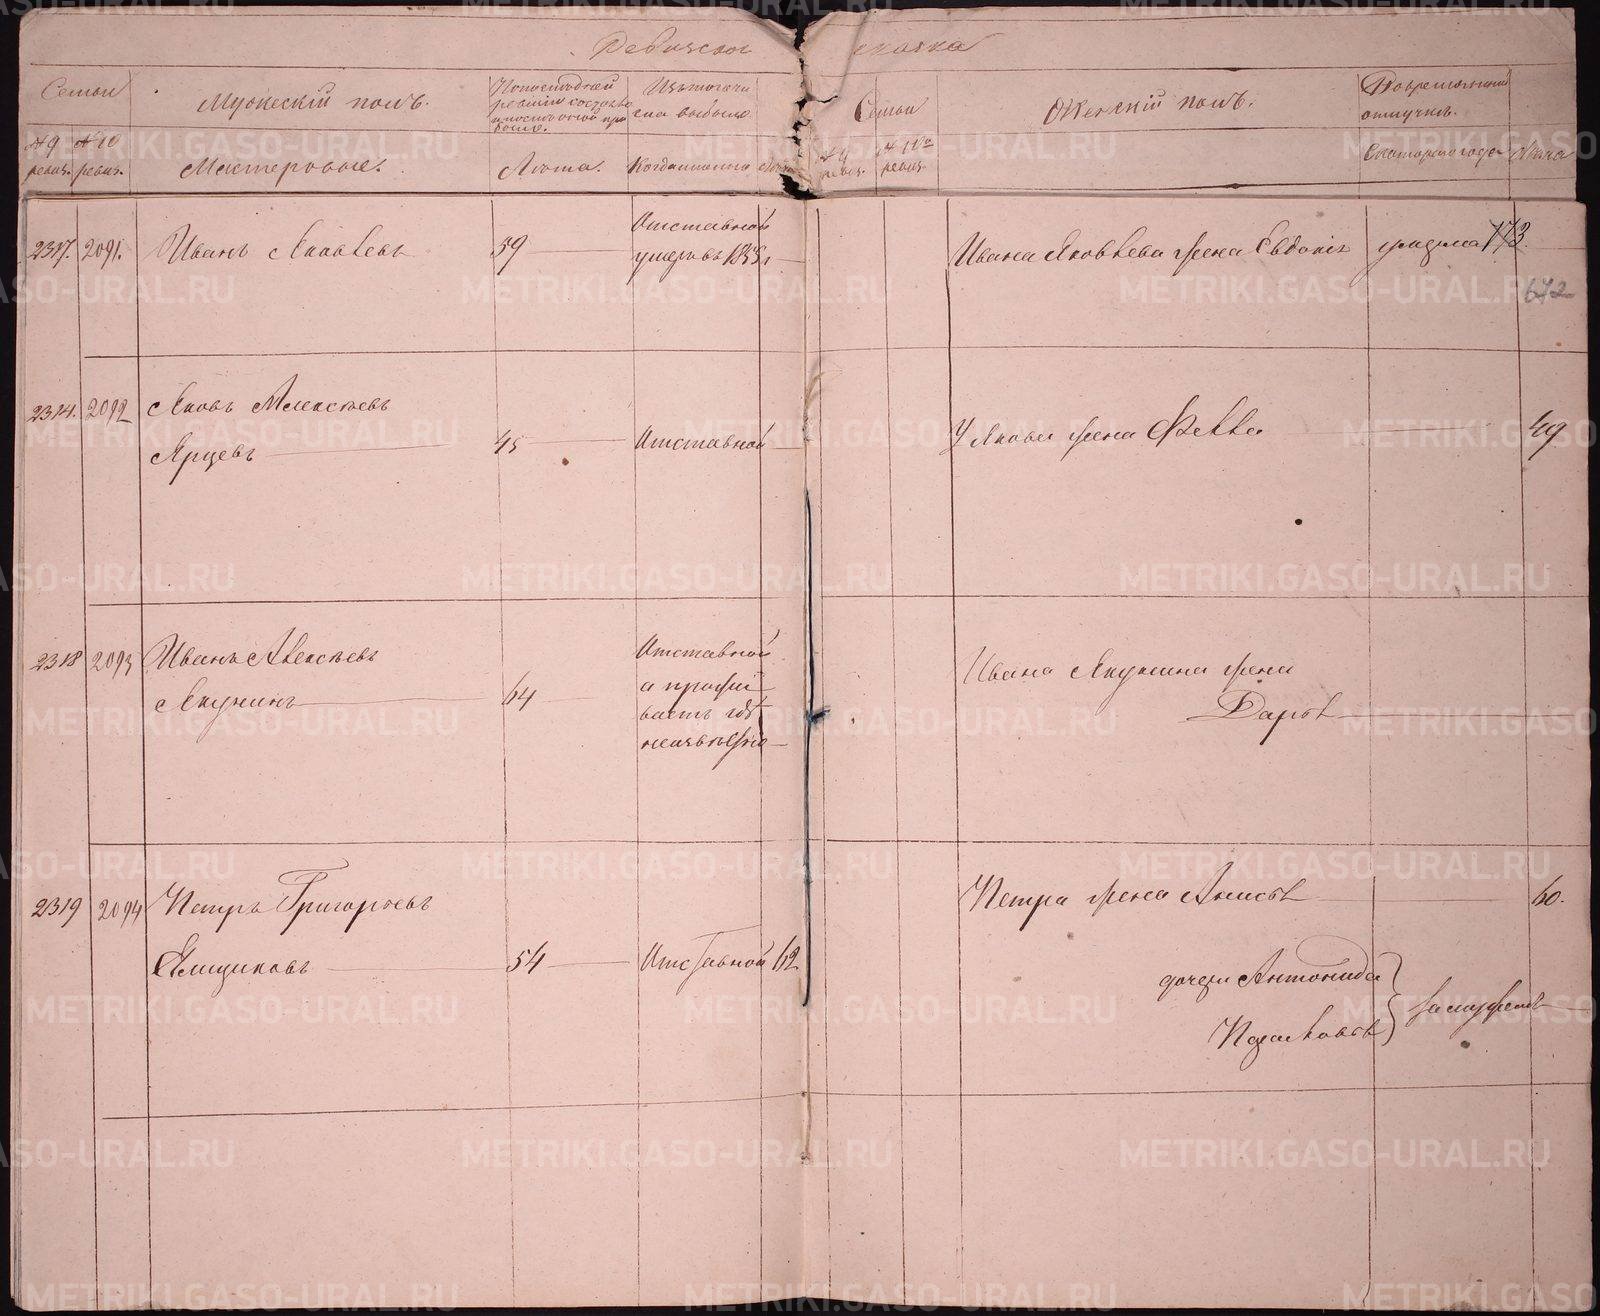 Ревизская сказка
Семьи
Мужескій полъ.
Мастеровые.
№ 9 ревиз.
№ 10 ревиз.
По последней ревизіи состояло и после оной прибыло.
Лѣта.
Изъ того числа выбыло
Когда именно
Семьи
№ 9 ревиз.
№ 10 ревиз.
Женскій полъ.
Во временной отлучкѣ.
Съ котораго года
Лѣта
2317. 2091. Иванъ Яковлевъ 59
Отставной
умеръ въ 1855 г
Ивана Яковлева жена Евдокія умерла
173.
672
2314. 2092 Яковъ Алексѣевъ
Ярцевъ 45 Отставной
У Якова жена Фекла 49
2318 2093 Иванъ Алексѣевъ
Якунинъ 64
Отставной
а прожи
ваетъ гдѣ
неизвѣстно
Ивана Якунина жена
Дарья
2319 2094 Петръ Григорьевъ
Ямщиковъ 54 Отставной 62
Петра жена Анисья 60.
дочери Антонида
Пелагія
замужемъ
METRIKI.GASO-URAL.RU